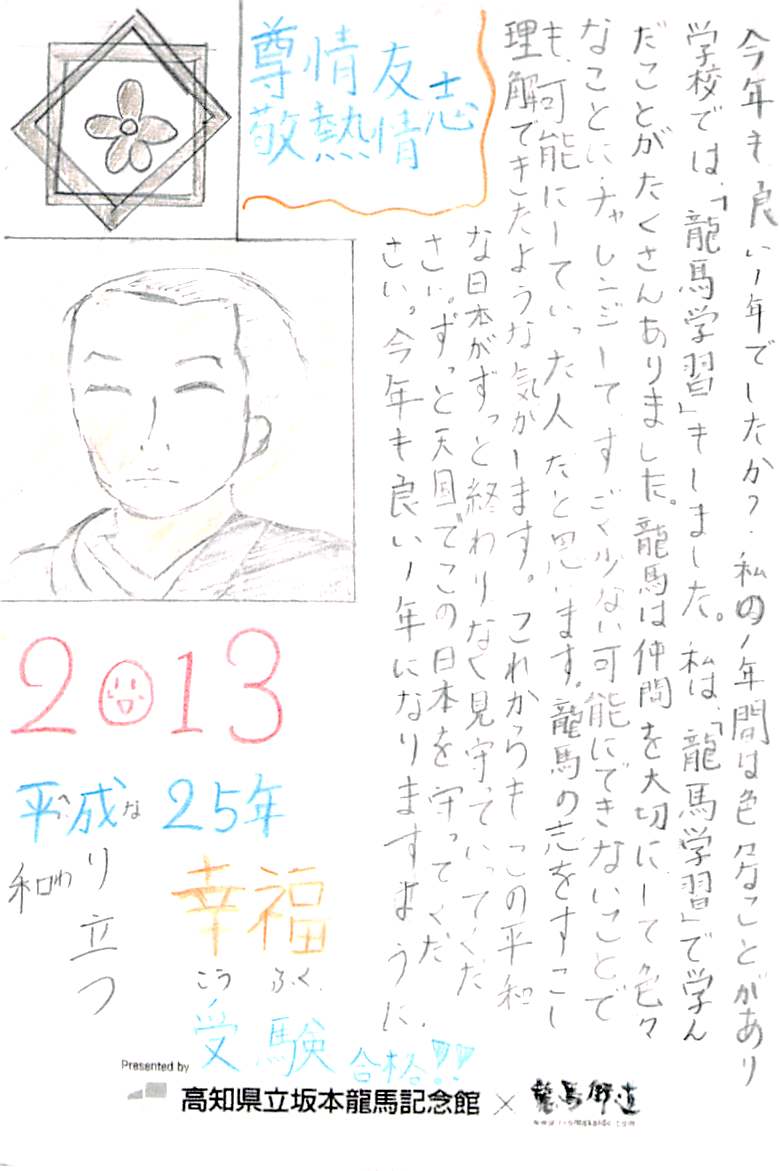 今年も良い1年でしたか?私の1年間は色々なことがあり
学校では、「龍馬学習」もしました。私は、「龍馬学習」で学ん
だことがたくさんありました。龍馬は仲間を大切にして色々
なことに、チャレンジして、すごく少ない可能にできないことで
も、可能にしていった人だと思います。龍馬の志をすこし
理解できたような気がします。これからもこの平和
な日本がずっと終わりなく見守っていってくだ
さい。ずっと天国でこの日本を守ってくだ
さい。今年も良い1年になりますように.
尊敬
情熱
友情
志
2013
平成な25年
り立つ
和わ
幸福
こうふく
受験合格!!
Presented by
高知県立坂本龍馬記念館×龍馬街道